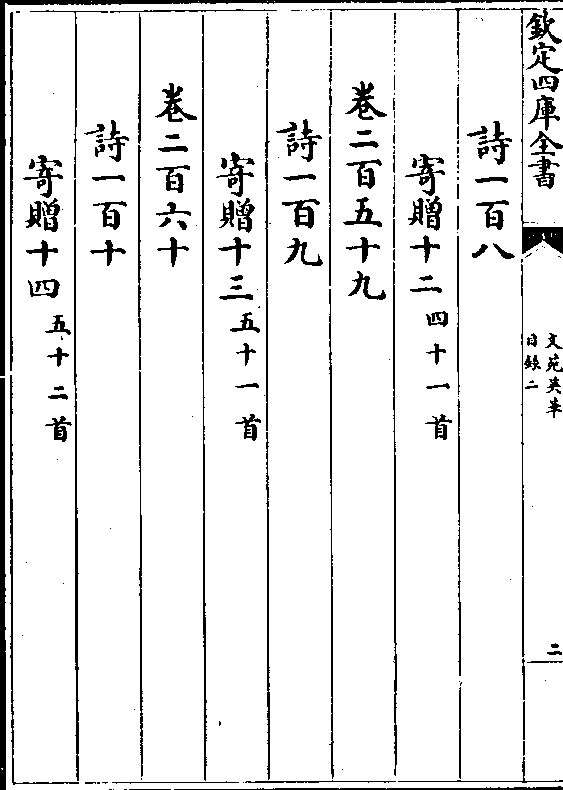 欽定四庫全書
文苑英華
目錄二
二
詩一百八
寄贈十二四十一首
卷二百五十九
詩一百九
寄贈十三五十一首
卷二百六十
詩一百十
寄贈十四五十二首